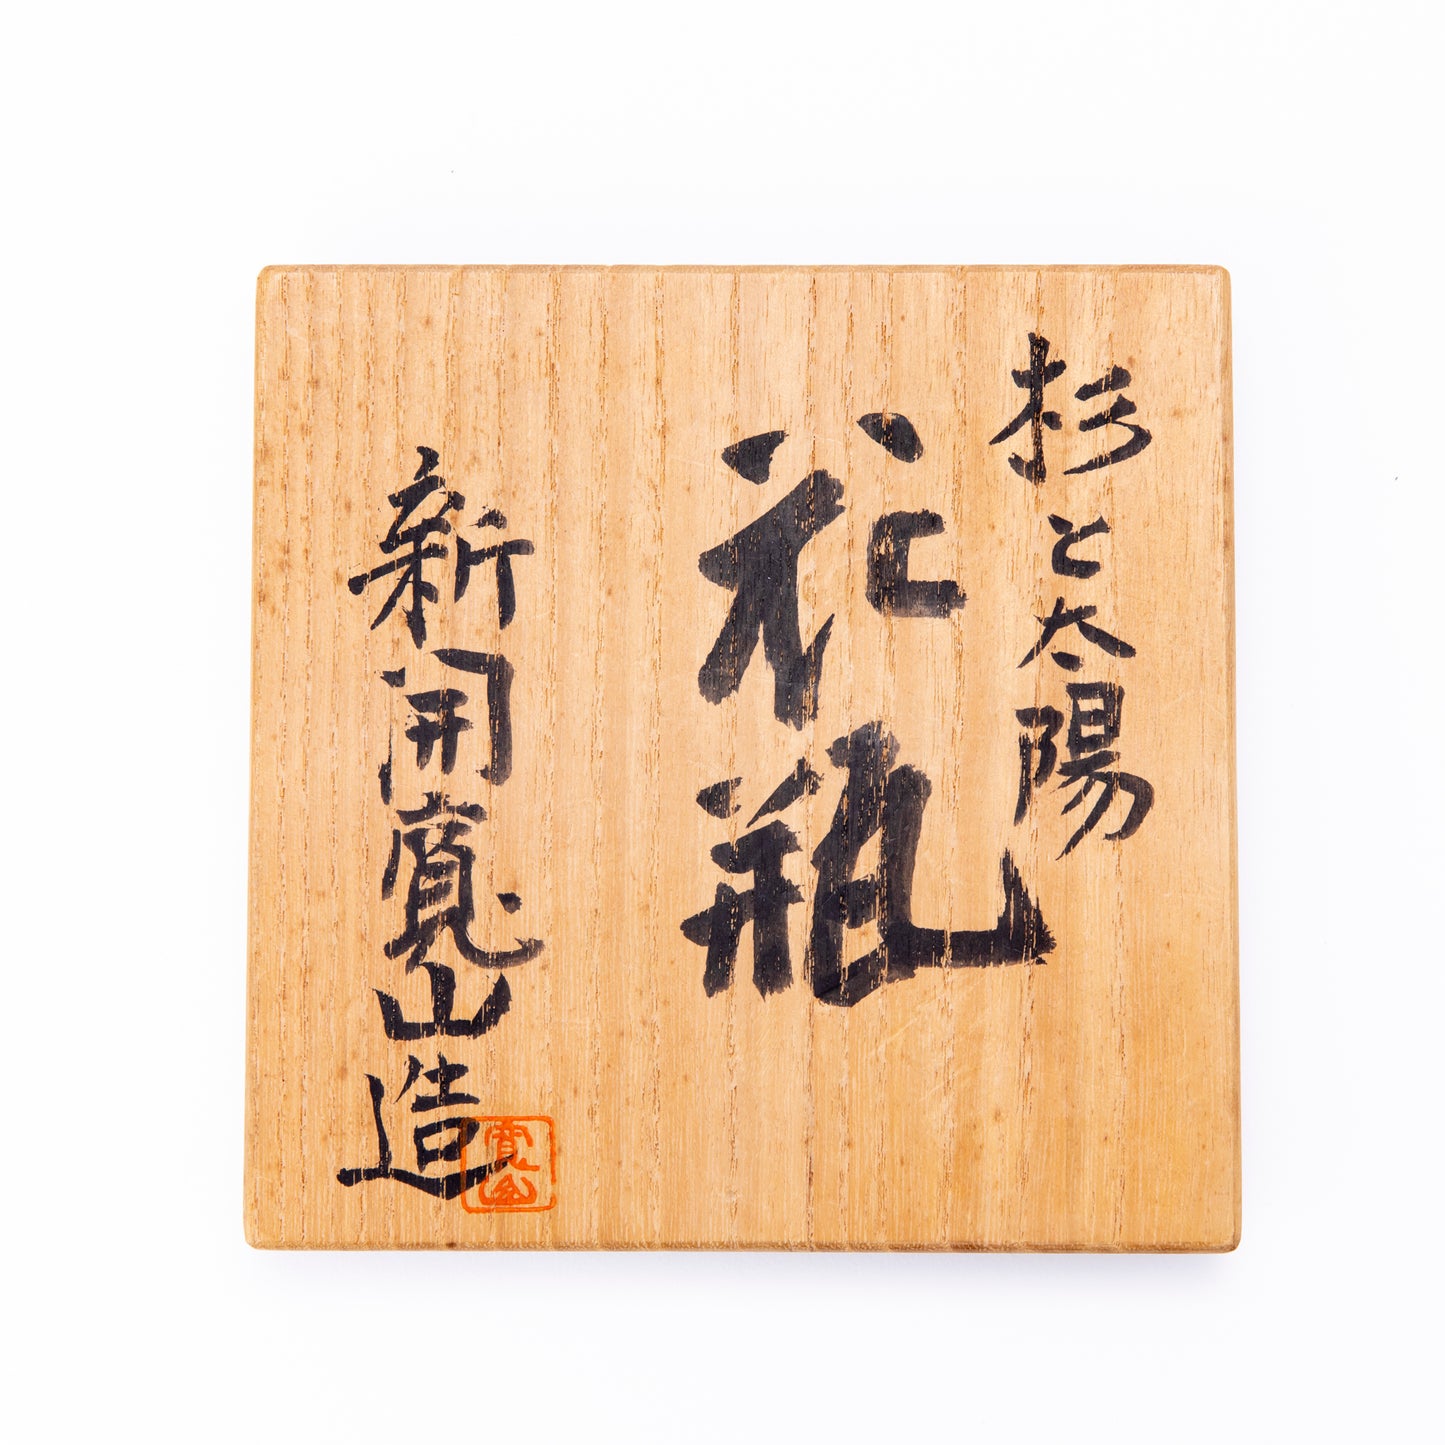 杉と太陽
花瓶
新開寛山造
寛山